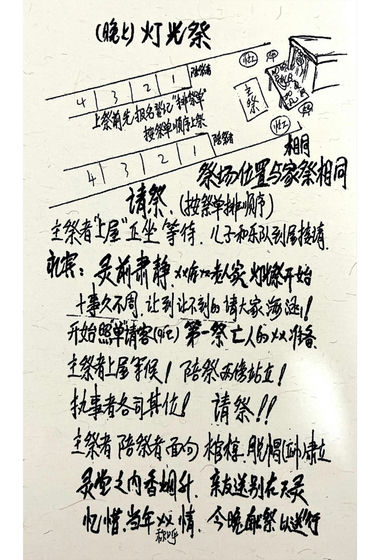 (晚上) 灯光祭
4 3 2 1 陪祭者
主祭
上祭前先报名登记"排祭单"
按祭单顺序上祭
4 3 2 1 陪祭者
相同
祭场位置与家祭相同
请祭 (按祭单排顺序)
主祭者"上屋"正坐等待. 儿子和乐队到屋接请.
礼宾: 灵前肃静. xx府xx老人家灯光祭开始
十事九不周. 让到让不到的请大家海涵!
开始照单请客 第一祭亡人的xx准备
主祭者上屋等候! 陪祭两傍站立!
执事者各司其位! 请祭!!
主祭者 陪祭者面向棺椁. 脱帽肃立
灵堂之内香烟升. 亲友送别在灵
忆惜当年xx情. 今晚献祭以送行
称呼